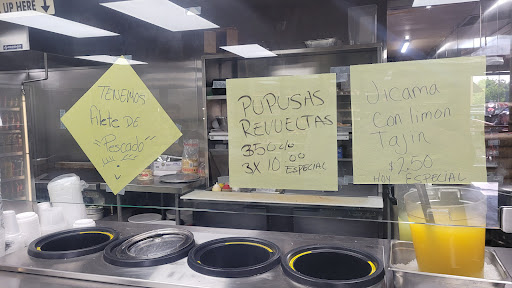 UP HERE
TENEMOS
Filete DE
"Pescado"
PUPUSAS
REVUELTAS
350 c/u
3 X 10.00 ESPECIAL
Jicama
Con limon
Tajin
$2.50
HOY ESPECIAL